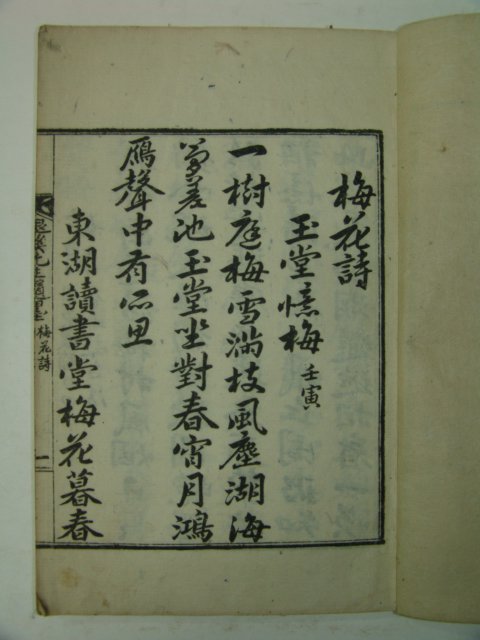 梅花詩
玉堂憶梅 壬寅
一樹庭梅雪滿枝風塵湖海
夢差池玉堂坐對春宵月鴻
鴈聲中有所思
東湖讀書堂梅花暮春
退溪先生 梅花詩 一